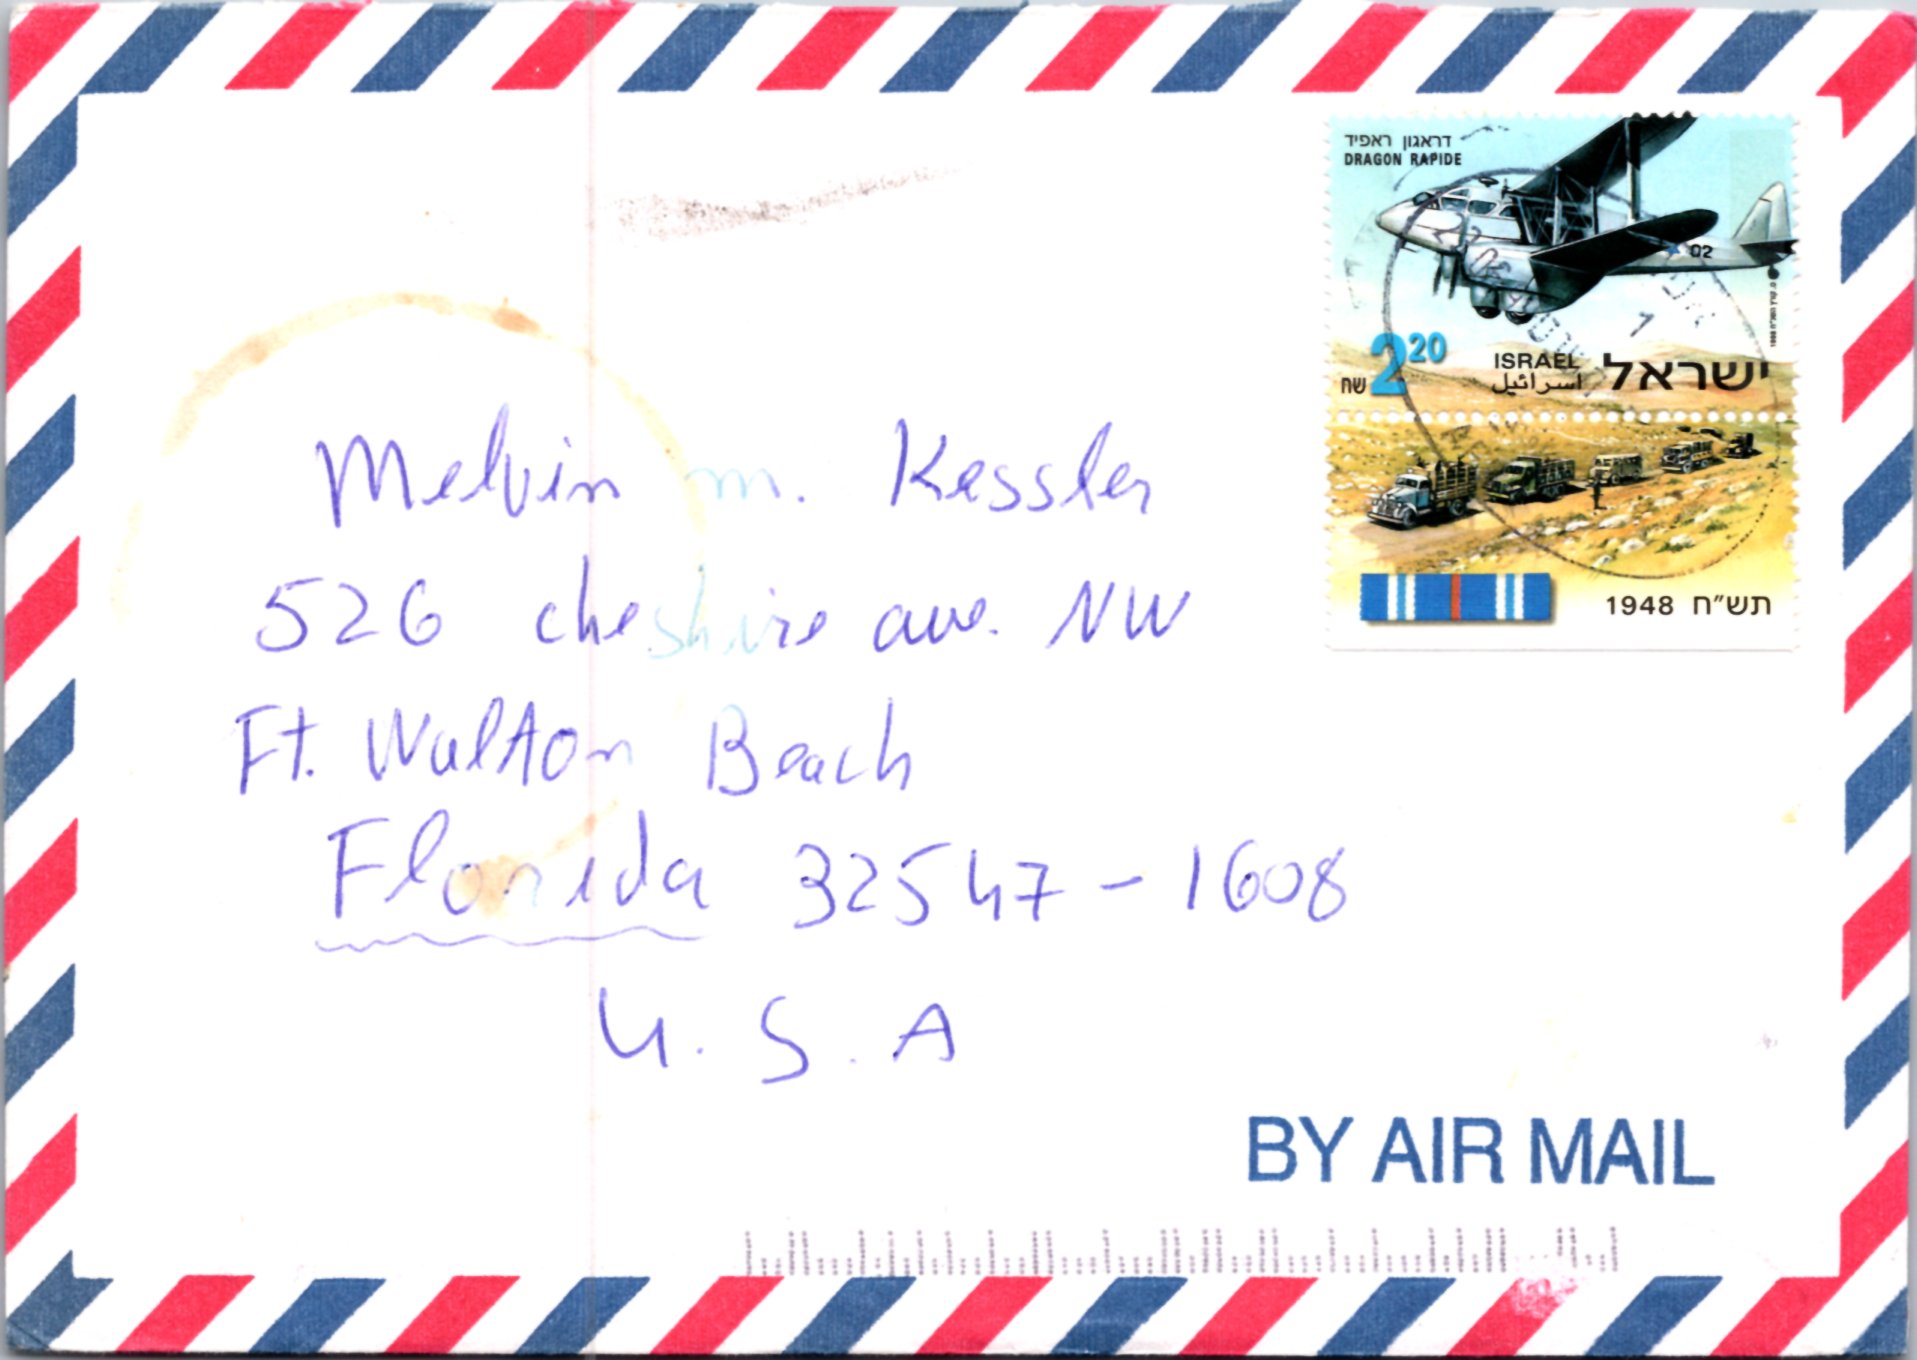 דראגון ראפיד
DRAGON RAPIDE
02
2.20 שח
ISRAEL ישראל
اسرائيل
1948 תש"ח
Melvin m. Kessler
526 cheshire ave. NW
Ft. Walton Beach
Florida 32547-1608
U.S.A
BY AIR MAIL